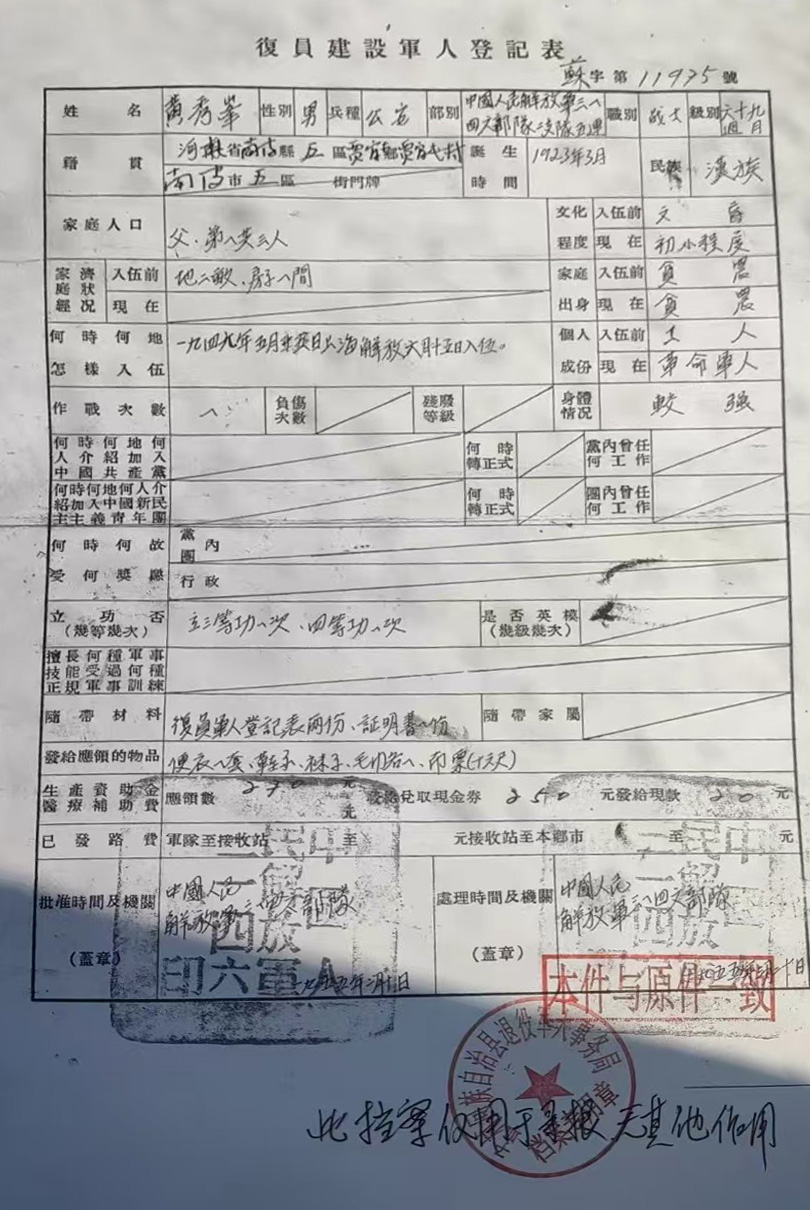 復員建設軍人登記表
蘇字第11975號
姓名 黃秀峯 性別 男 兵種 公安 部別 中國人民解放軍三一四六部隊二支隊五連 職別 战士 級別
籍貫 河北省南皮縣五區賈官鄉賈官屯村 誕生時間 1923年3月 民族 漢族
南皮市五區 街門牌
家庭人口 父、弟、共三人 文化程度 入伍前 文盲
現在 初小程度
家庭經濟狀况 入伍前 地二畝、房子八間 家庭出身 入伍前 貧農
現在 現在 貧農
何時何地怎樣入伍 一九四九年五月 上海解放六月十五日入伍。 個人成份 入伍前 工人
現在 革命軍人
作戰次數 負傷次數 殘廢等級 身體情况 較强
何時何地何人介紹加入中國共產黨 何時轉正式 黨內曾任何工作
何時何地何人介紹加入中國新民主主義青年團 何時轉正式 團內曾任何工作
何時何故受何獎懲 黨團內
行政
立功否(幾等幾次) 立三等功一次、四等功一次 是否英模(幾級幾次)
擅長何種軍事技能受過何種正規軍事訓練
隨帶材料 復員軍人登記表兩份、証明書一份 隨帶家屬
發給應領的物品 便衣一套、鞋子、袜子、毛巾各一、布票(十六尺)
生產資助金醫療補助費 應領數 270元 發給兌取現金券 250 元發給現款 20 元
元
已發路費 軍隊至接收站 至 元接收站至本鄉市 至 元
批准時間及機關(蓋章) 中國人民解放軍三一四六部隊 處理時間及機關(蓋章) 中國人民解放軍三一四六部隊
一九五五年 月 日
本件与原件一致
族自治县退役军人事务局
档案专用章
此档案仅用于 无其他作用